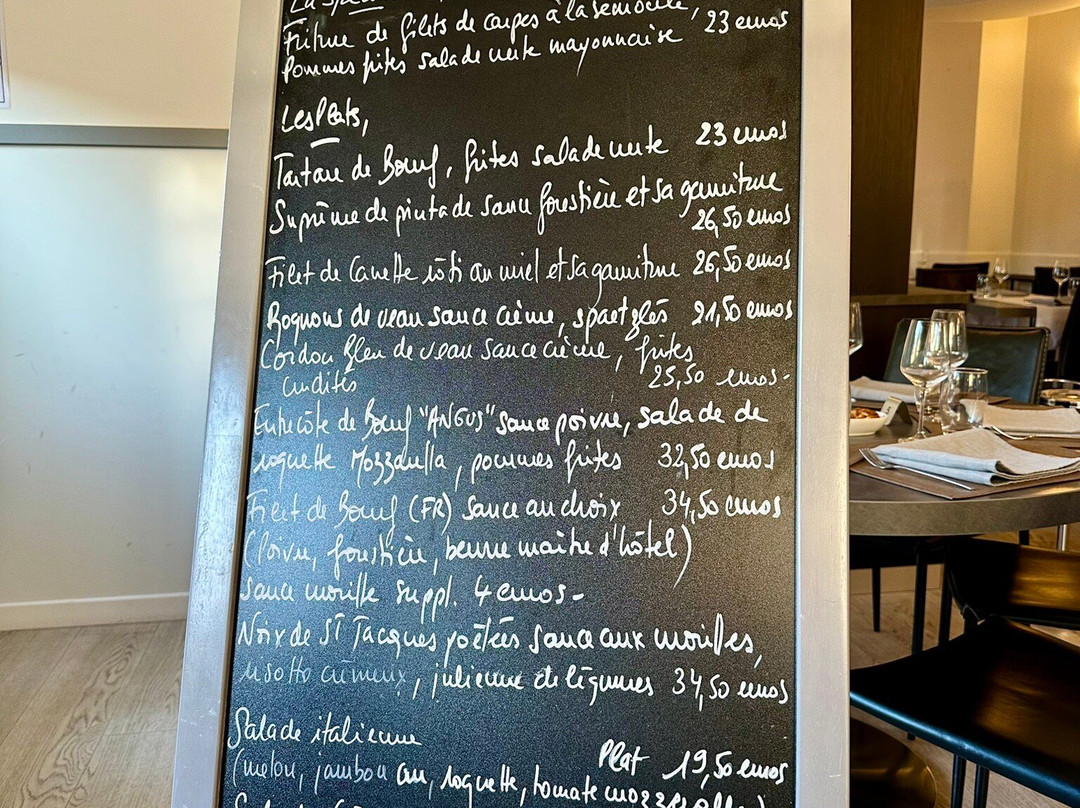 La spé
Friture de filets de carpes à la semoule,
Pommes frites salade verte mayonnaise 23 euros
Les Plats,
Tartare de Bœuf, frites salade verte 23 euros
Suprême de pintade sauce forestière et sa garniture
26,50 euros
Filet de Canette rôti au miel et sa garniture 26,50 euros
Rognons de veau sauce crème, spaetzlés 21,50 euros
Cordon Bleu de veau sauce crème, frites
crudités 25,50 euros-
Entrecôte de Bœuf "ANGUS" sauce poivre, salade de
roquette Mozzarella, pommes frites 32,50 euros
Filet de Bœuf (FR) sauce au choix 34,50 euros
(Poivre, forestière, beurre maître d'hôtel)
sauce morille suppl. 4 euros-
Noix de ST Jacques poêlées sauce aux morilles,
risotto crémeux, julienne de légumes 34,50 euros
Salade italienne
Plat 19,50 euros
(melon, jambon cru, roquette, tomate mozzarella